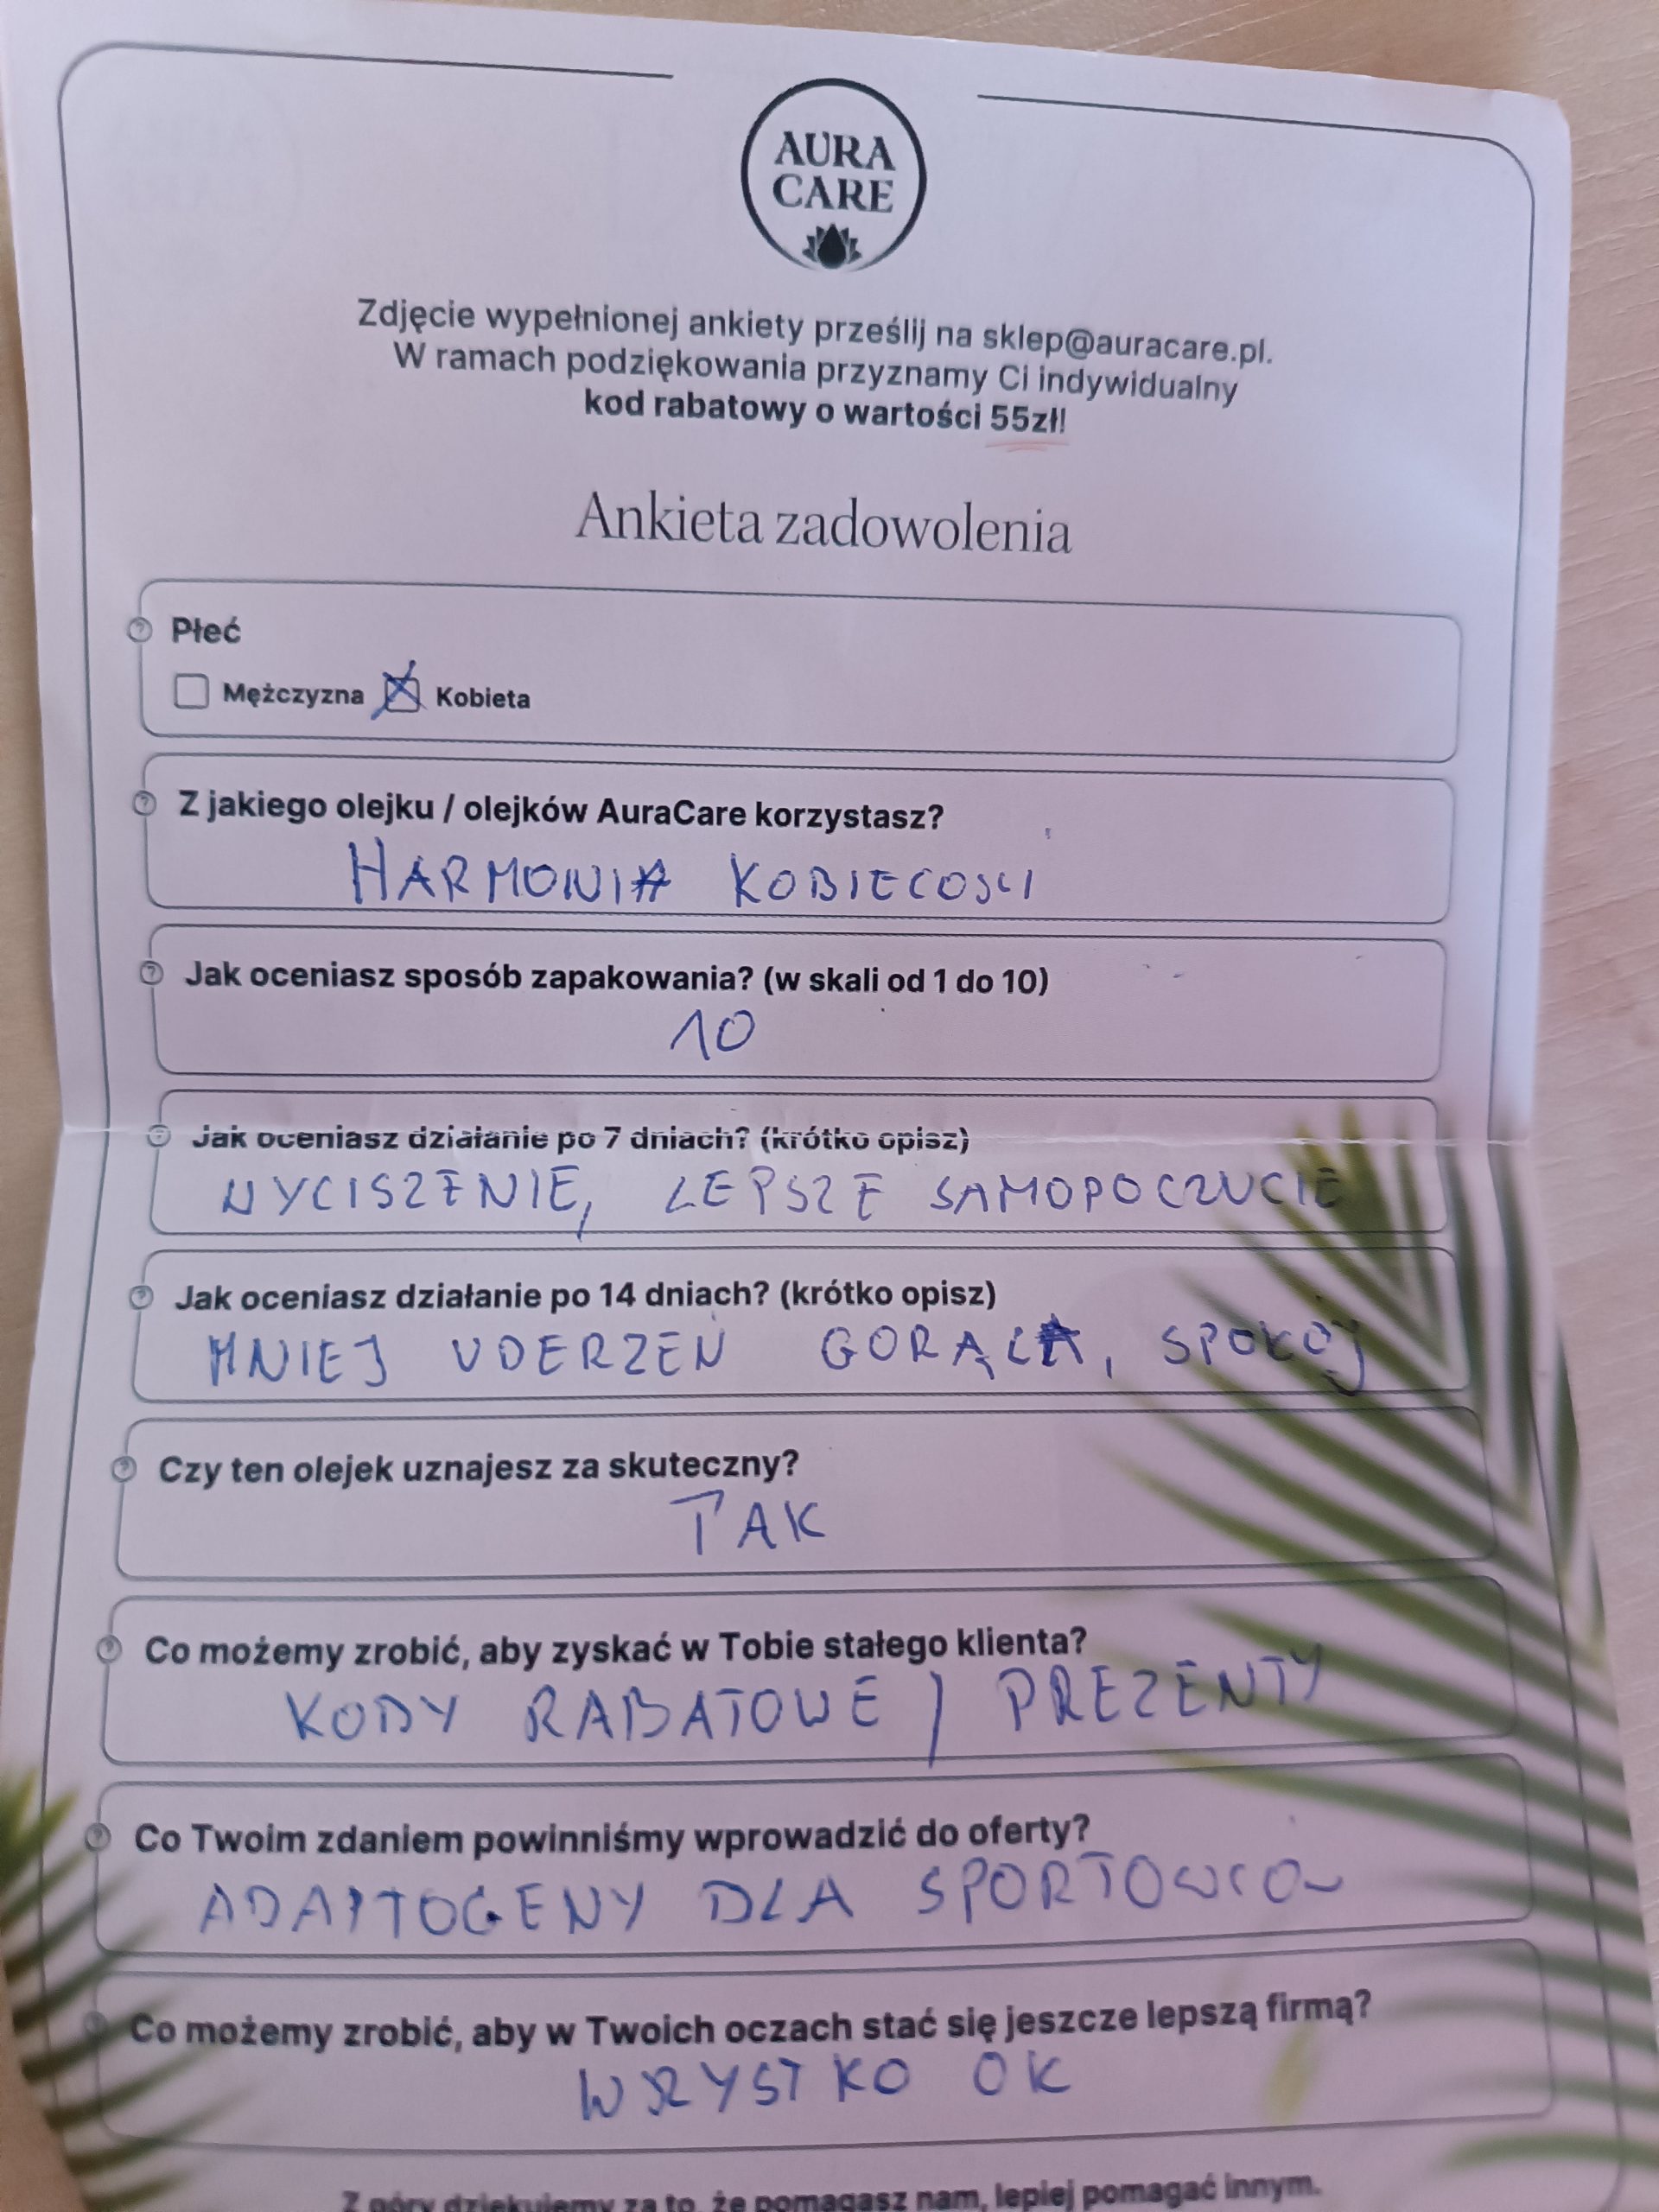 AURA
CARE
Zdjęcie wypełnionej ankiety prześlij na sklep@auracare.pl.
W ramach podziękowania przyznamy Ci indywidualny
kod rabatowy o wartości 55zł!
Ankieta zadowolenia
Płeć
Mężczyzna Kobieta
Z jakiego olejku / olejków AuraCare korzystasz?
HARMONIA KOBIECOSCI
Jak oceniasz sposób zapakowania? (w skali od 1 do 10)
10
Jak oceniasz działanie po 7 dniach? (krótko opisz)
WYCISZENIE, LEPSZE SAMOPOCZUCIE
Jak oceniasz działanie po 14 dniach? (krótko opisz)
MNIEJ UDERZEN GORĄCA, SPOKOJ
Czy ten olejek uznajesz za skuteczny?
TAK
Co możemy zrobić, aby zyskać w Tobie stałego klienta?
KODY RABATOWE / PREZENTY
Co Twoim zdaniem powinniśmy wprowadzić do oferty?
ADAPTOGENY DLA SPORTOWCOW
Co możemy zrobić, aby w Twoich oczach stać się jeszcze lepszą firmą?
WSZYSTKO OK
Z góry dziękujemy za to, że pomagasz nam, lepiej pomagać innym.